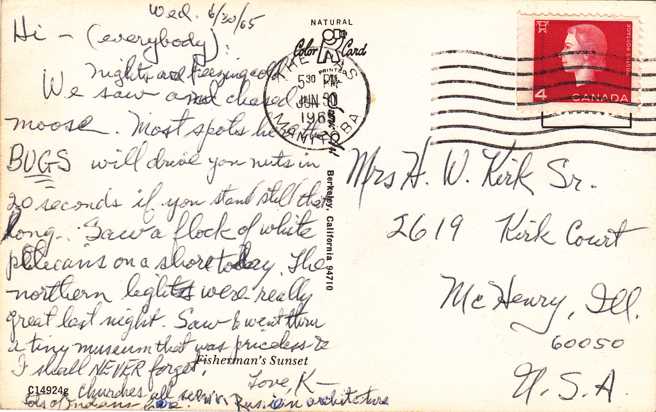 Wed. 6/30/65
Hi - (everybody):
nights are freezing cold
We saw and chased
moose. Most spots he
BUGS will drive you nuts in
20 seconds if you stand still that
long. Saw a flock of white
pelicans on a shore today. The
northern lights were really
great last night. Saw & went thru
a tiny museum that was priceless &
I shall NEVER forget.
Love, K-
churches all
lots of Indians Russian architecture
Fisherman's Sunset
C14924g
NATURAL
Color Card
Berkeley, California 94710
THE PAS
5 30 PM
JUN 30
1965
MANITOBA
4 CANADA
Mrs H. W. Kirk Sr.
2619 Kirk Court
McHenry, Ill.
60050
U.S.A.